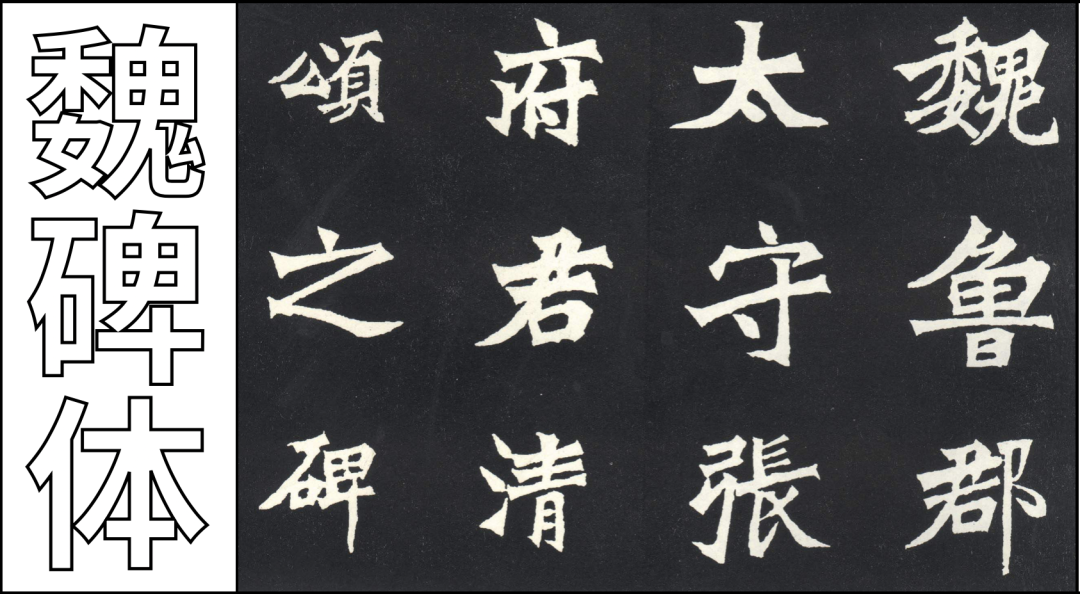 魏碑体
魏魯郡
太守張
府君清
頌之碑